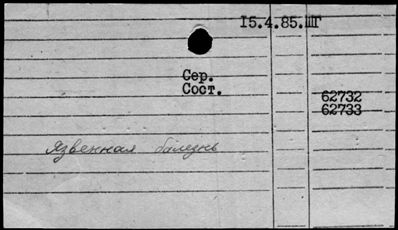 15.4.85.ШГ
Сер.
Сост.
62732
62733
Язвенная болезнь